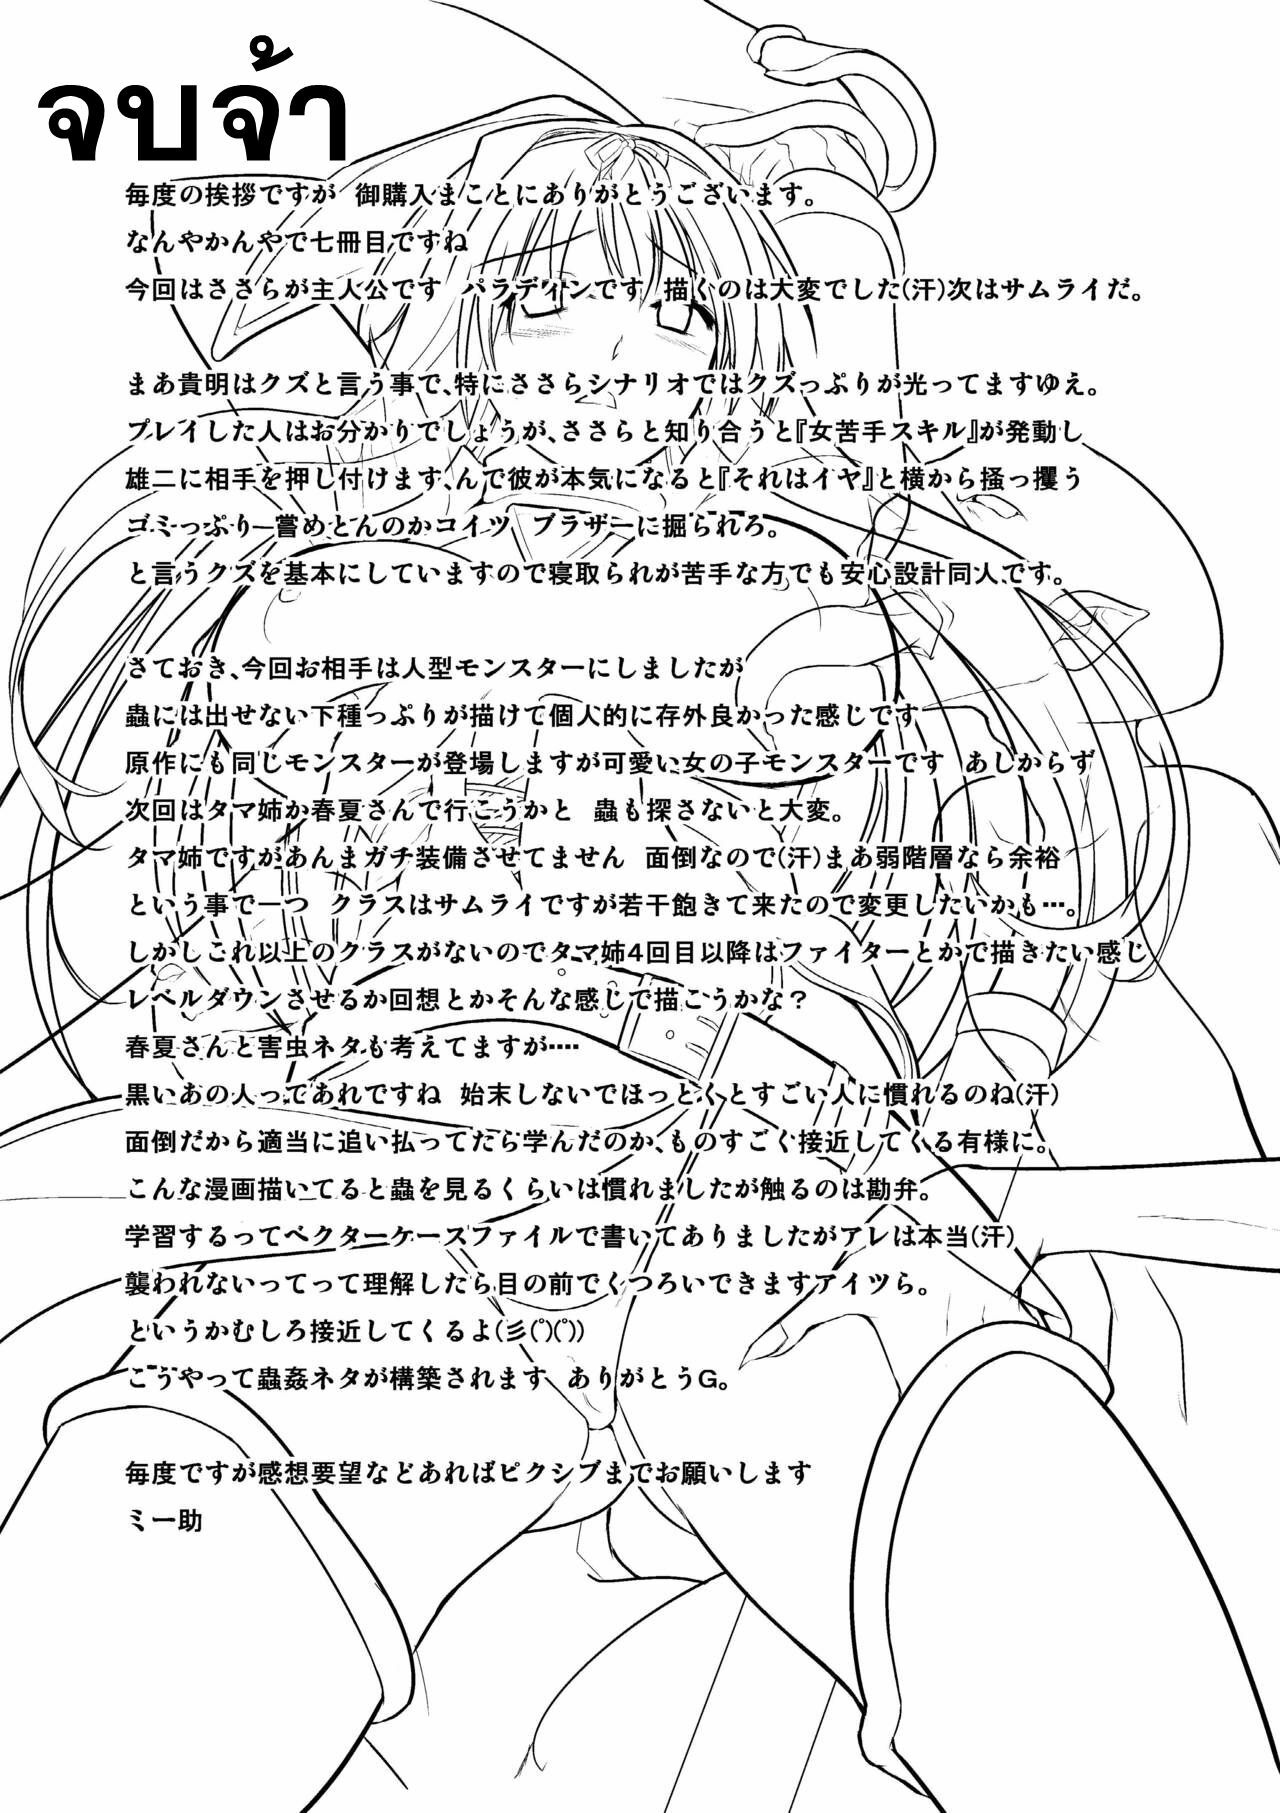 จบจ้า
毎度の挨拶ですが 御購入まことにありがとうございます。
なんやかんやで七冊目ですね
今回はささらが主人公です パラディンです 描くのは大変でした(汗)次はサムライだ。
まあ貴明はクズと言う事で、特にささらシナリオではクズっぷりが光ってますゆえ。
プレイした人はお分かりでしょうが、ささらと知り合うと『女苦手スキル』が発動し
雄二に相手を押し付けます、んで彼が本気になると『それはイヤ』と横から掻っ攫う
ゴミっぷり―嘗めとんのかコイツ ブラザーに掘られろ。
と言うクズを基本にしていますので寝取られが苦手な方でも安心設計同人です。
さておき、今回お相手は人型モンスターにしましたが
蟲には出せない下種っぷりが描けて個人的に存外良かった感じです
原作にも同じモンスターが登場しますが可愛い女の子モンスターです あしからず
次回はタマ姉か春夏さんで行こうかと 蟲も探さないと大変。
タマ姉ですがあんまガチ装備させてません 面倒なので(汗)まあ弱階層なら余裕
という事で一つ クラスはサムライですが若干飽きて来たので変更したいかも…。
しかしこれ以上のクラスがないのでタマ姉4回目以降はファイターとかで描きたい感じ
レベルダウンさせるか回想とかそんな感じで描こうかな？
春夏さんと害虫ネタも考えてますが‥‥
黒いあの人ってあれですね 始末しないでほっとくとすごい人に慣れるのね(汗)
面倒だから適当に追い払ってたら学んだのか、ものすごく接近してくる有様に。
こんな漫画描いてると蟲を見るくらいは慣れましたが触るのは勘弁。
学習するってベクターケースファイルで書いてありましたがアレは本当(汗)
襲われないってって理解したら目の前でくつろいできますアイツら。
というかむしろ接近してくるよ(彡(ﾟ)(ﾟ))
こうやって蟲姦ネタが構築されます ありがとうG。
毎度ですが感想要望などあればピクシブまでお願いします
ミー助